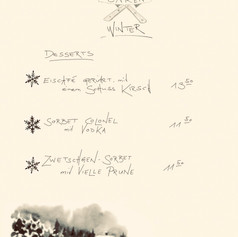 WINTER
DESSERTS
EISCAFÉ GERÜHRT, mit
einem SCHUSS KIRSCH 13.50
SORBET COLONEL
mit VODKA 11.50
ZWETSCHGEN-SORBET
mit VIELLE PRUNE 11.50